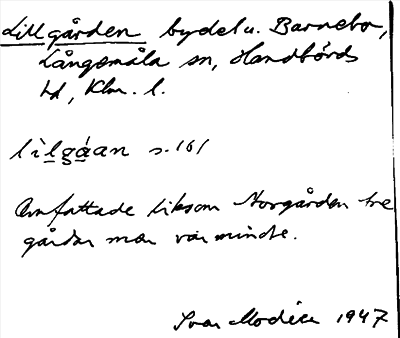 Lillgården bydel u. Barnebo,
Långemåla sn, Handbörds
hd, Klm. l.
lìlgá̀an s. 161
Omfattade liksom Norgården tre
gårdar men var mindre.
Ivar Modéer 1947